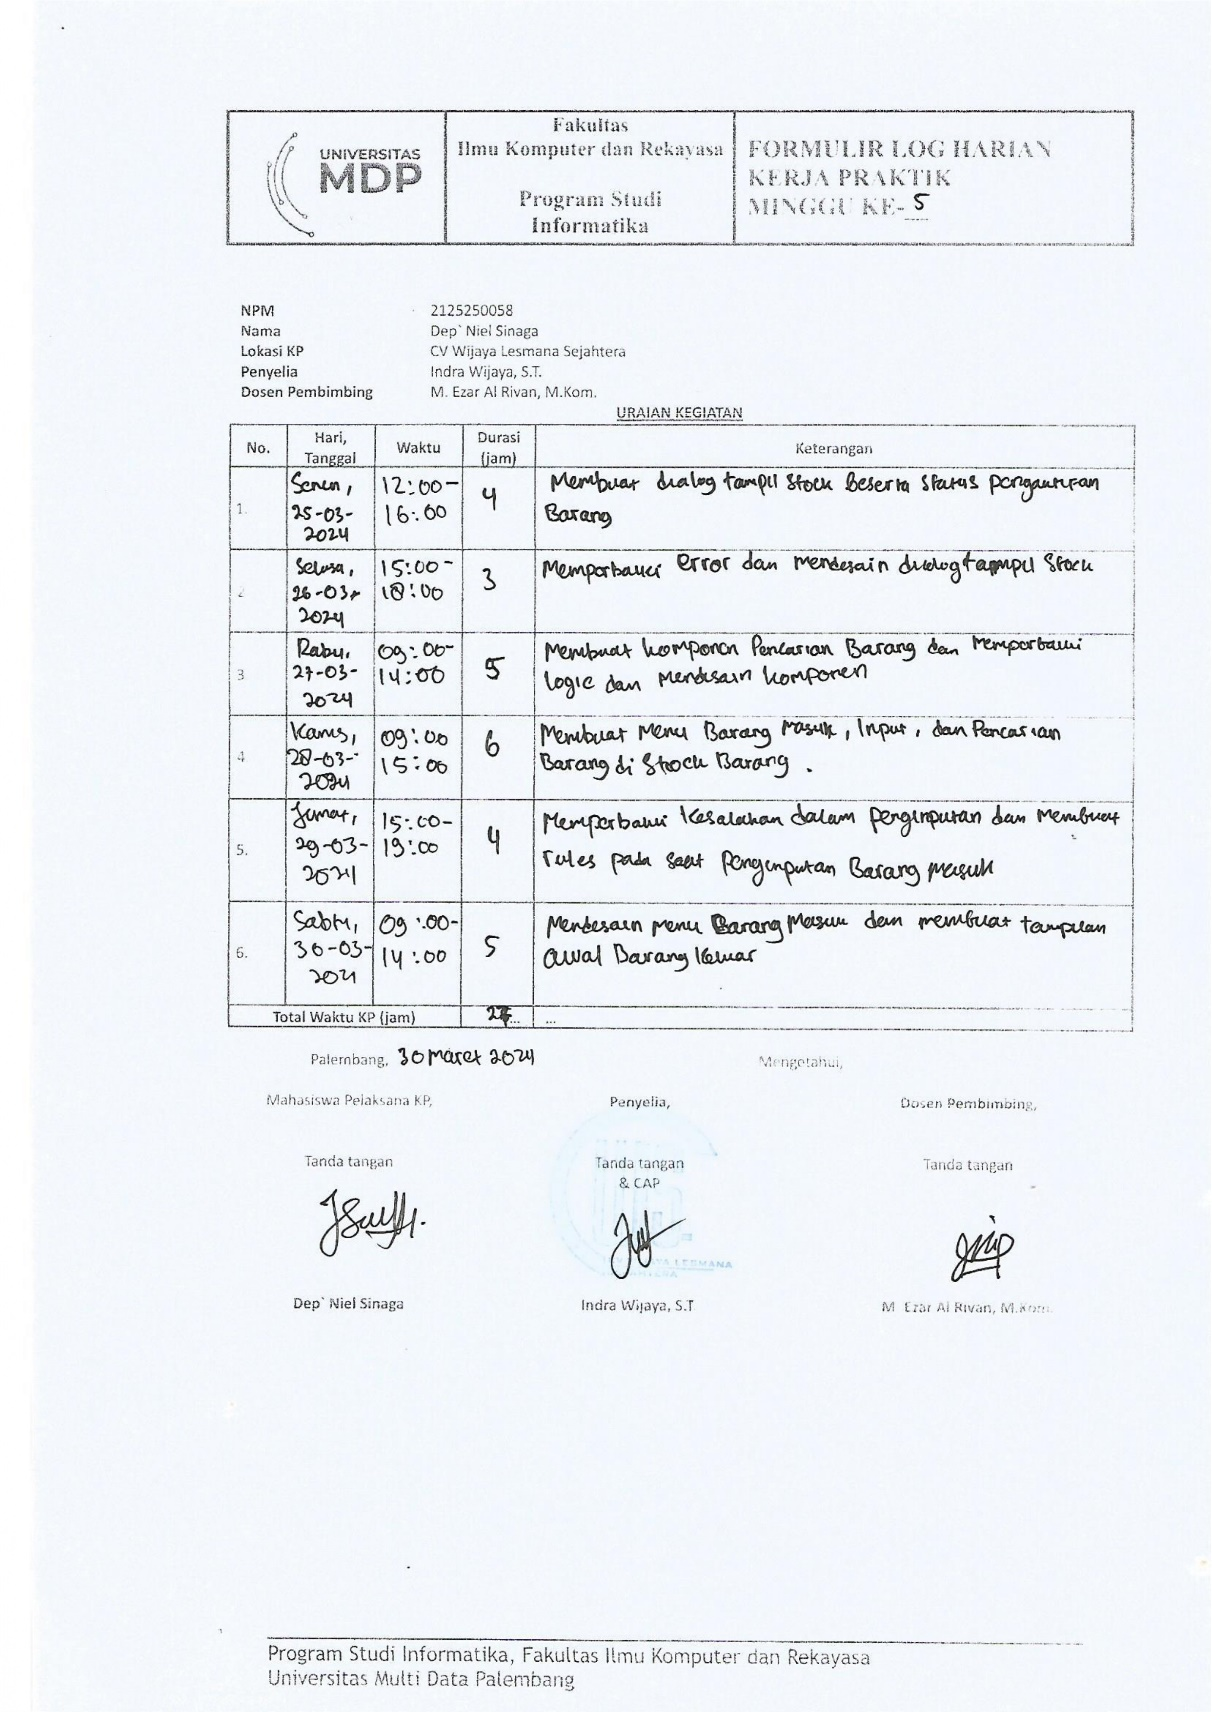 UNIVERSITAS
MDP
Fakultas
Ilmu Komputer dan Rekayasa
Program Studi
Informatika
FORMULIR LOG HARIAN
KERJA PRAKTIK
MINGGU KE- 5
NPM 2125250058
Nama Dep` Niel Sinaga
Lokasi KP CV Wijaya Lesmana Sejahtera
Penyelia Indra Wijaya, S.T.
Dosen Pembimbing M. Ezar Al Rivan, M.Kom.
URAIAN KEGIATAN
No. Hari, Tanggal Waktu Durasi (jam) Keterangan
1. Senin, 25-03-2024 12:00-16:00 4 Membuat dialog tampil stock Beserta status pengaturan
Barang
2 Selasa, 26-03-2024 15:00-18:00 3 Memperbaiki error dan mendesain dialog tampil Stock
3 Rabu, 27-03-2024 09:00-14:00 5 Membuat komponen Pencarian Barang dan Memperbaiki
Logic dan Mendisain komponen
4 Kamis, 28-03-2024 09:00 15:00 6 Membuat Menu Barang Masuk, Input, dan Pencarian
Barang di Stock Barang.
5. Jumat, 29-03-2024 15:00-19:00 4 Memperbaiki Kesalahan dalam penginputan dan Membuat
rules pada saat Penginputan Barang Masuk
6. Sabtu, 30-03-2024 09:00-14:00 5 Mendesain Menu Barang Masuk dan membuat tampilan
awal Barang Keluar
Total Waktu KP (jam) 27... ...
Palembang, 30 Maret 2024 Mengetahui,
Mahasiswa Pelaksana KP, Penyelia, Dosen Pembimbing,
Tanda tangan Tanda tangan Tanda tangan
& CAP
LESMANA
Dep` Niel Sinaga Indra Wijaya, S.T M Ezar Al Rivan, M.Kom.
Program Studi Informatika, Fakultas Ilmu Komputer dan Rekayasa
Universitas Multi Data Palembang